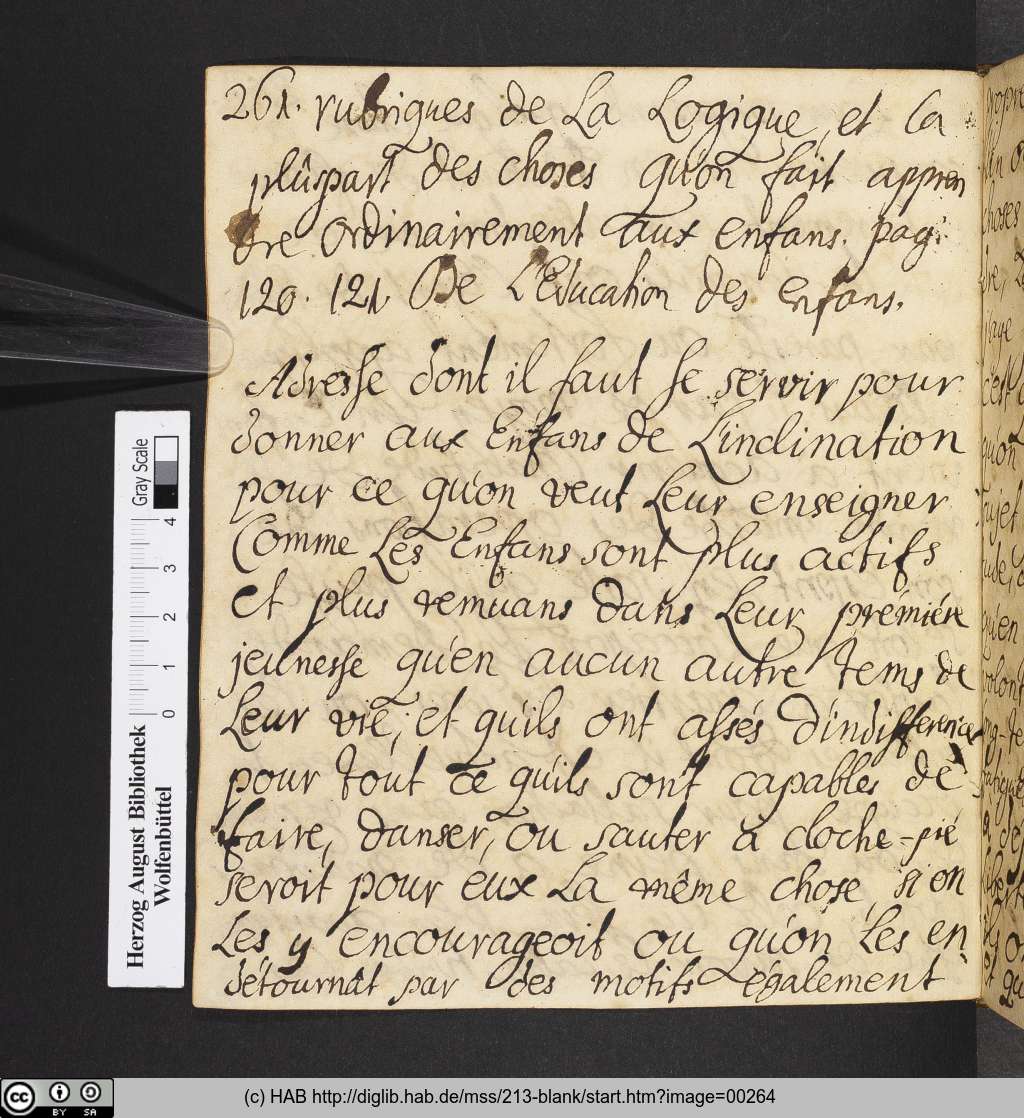 261. rubriques de La Logique, et La
plûspart des choses qu'on fait appren
dre ordinairement aux enfans. pag:
120. 121. De L'Education des enfans.
Adresse dont il faut se servir pour
donner aux Enfans de L'inclination
pour ce qu'on veut Leur enseigner
Comme Les Enfans sont plus actifs
et plus remuans dans Leur prémiére
jeunesse qu'en aucun autre tems de
Leur vie; et qu'ils ont assés d'indifference
pour tout ce qu'ils sont capables de
faire, danser, ou sauter à cloche-pié
seroit pour eux La même chose, si on
Les y encourageoit ou qu'on Les en
détournât par des motifs également
Herzog August Bibliothek
Wolfenbüttel
Gray Scale
0 1 2 3 4
cc BY SA
(c) HAB http://diglib.hab.de/mss/213-blank/start.htm?image=00264